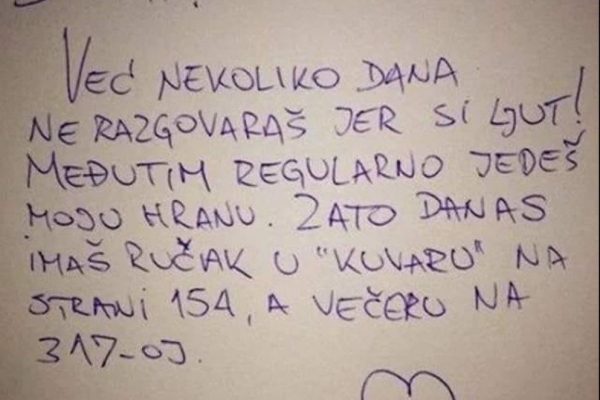 VEĆ NEKOLIKO DANA
NE RAZGOVARAŠ JER SI LJUT!
MEĐUTIM REGULARNO JEDEŠ
MOJU HRANU. ZATO DANAS
IMAŠ RUČAK U "KUVARU" NA
STRANI 154, A VEČERU NA
317-OJ.